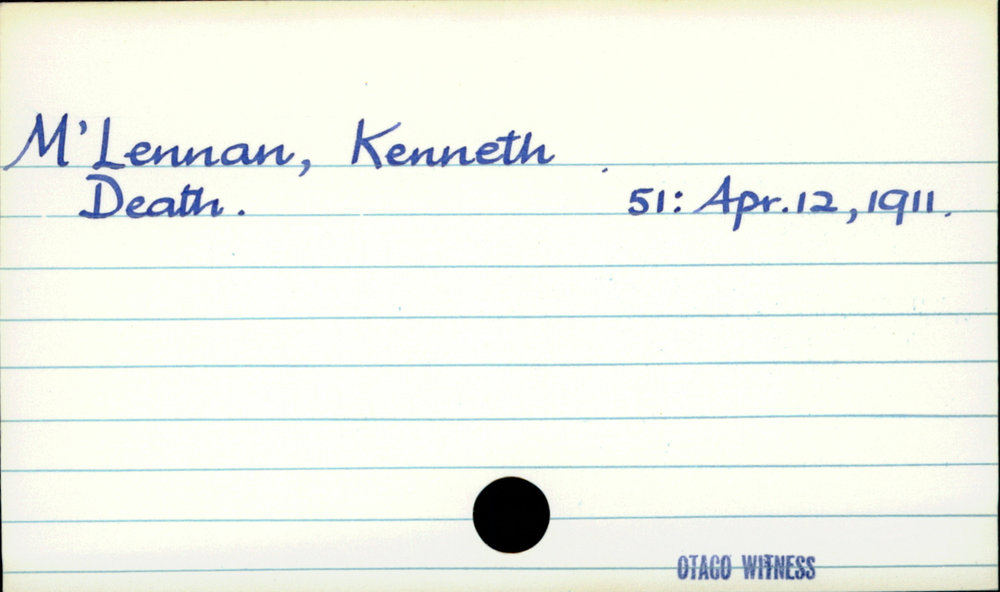 M'Lennan, Kenneth
Death. 51: Apr. 12, 1911.
OTAGO WITNESS